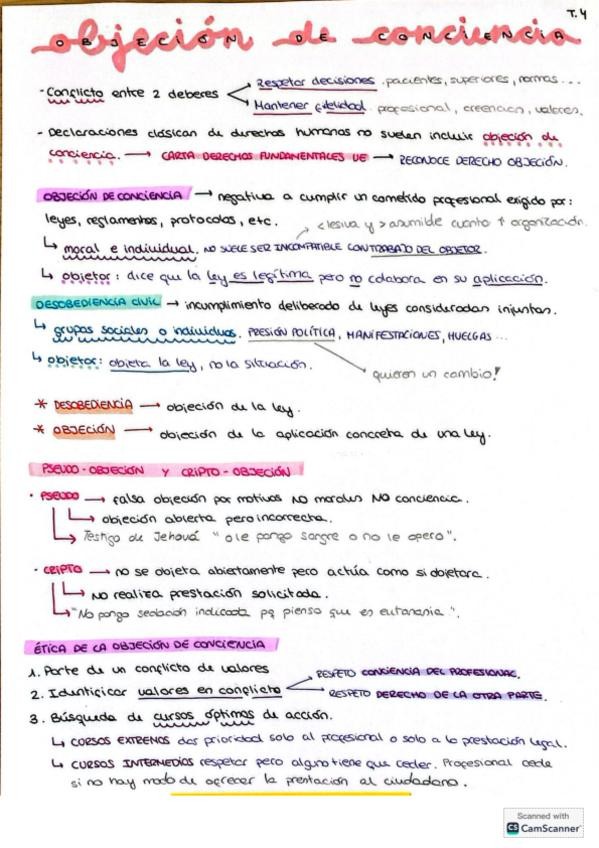 T.4
objeción de conciencia
OBJECIÓN DE CONCIENCIA
- Conflicto entre 2 deberes
Respetar decisiones. pacientes, superiores, normas...
Mantener fidelidad. profesional, creencias, valores.
- Declaraciones clásicas de derechos humanos no suelen incluir objeción de
conciencia. → CARTA DERECHOS FUNDAMENTALES UE → RECONOCE DERECHO OBJECIÓN.
OBJECIÓN DE CONCIENCIA → negativa a cumplir un cometido profesional exigido por:
leyes, reglamentos, protocolos, etc.
< lesiva y > asumible cuanto ↑ organización.
↳ moral e individual. NO SUELE SER INCOMPATIBLE CON TRABAJO DEL OBJETOR.
↳ objetor: dice que la ley es legítima pero no colabora en su aplicación.
DESOBEDIENCIA CIVIL → incumplimiento deliberado de leyes consideradas injustas.
↳ grupos sociales o individuos. PRESIÓN POLÍTICA, MANIFESTACIONES, HUELGAS...
↳ objetor: objeta la ley, no la situación.
quieren un cambio!
* DESOBEDIENCIA → objeción de la ley.
* OBJECIÓN → objeción de la aplicación concreta de una ley.
PSEUDO-OBJECIÓN Y CRIPTO-OBJECIÓN
· PSEUDO → falsa objeción por motivos NO morales NO conciencia.
↳ objeción abierta pero incorrecta.
↳ Testigo de Jehová "o le pongo sangre o no le opero".
· CRIPTO → no se objeta abiertamente pero actúa como si objetara.
↳ NO realiza prestación solicitada.
↳ "No pongo sedación indicada pq pienso que es eutanasia".
ÉTICA DE LA OBJECIÓN DE CONCIENCIA
1. Parte de un conflicto de valores
2. Identificar valores en conflicto
RESPETO CONCIENCIA DEL PROFESIONAL.
RESPETO DERECHO DE LA OTRA PARTE.
3. Búsqueda de cursos óptimos de acción.
↳ CURSOS EXTREMOS dar prioridad solo al profesional o solo a la prestación legal.
↳ CURSOS INTERMEDIOS respetar pero alguno tiene que ceder. Profesional cede
si no hay modo de ofrecer la prestación al ciudadano.
Scanned with
CS CamScanner